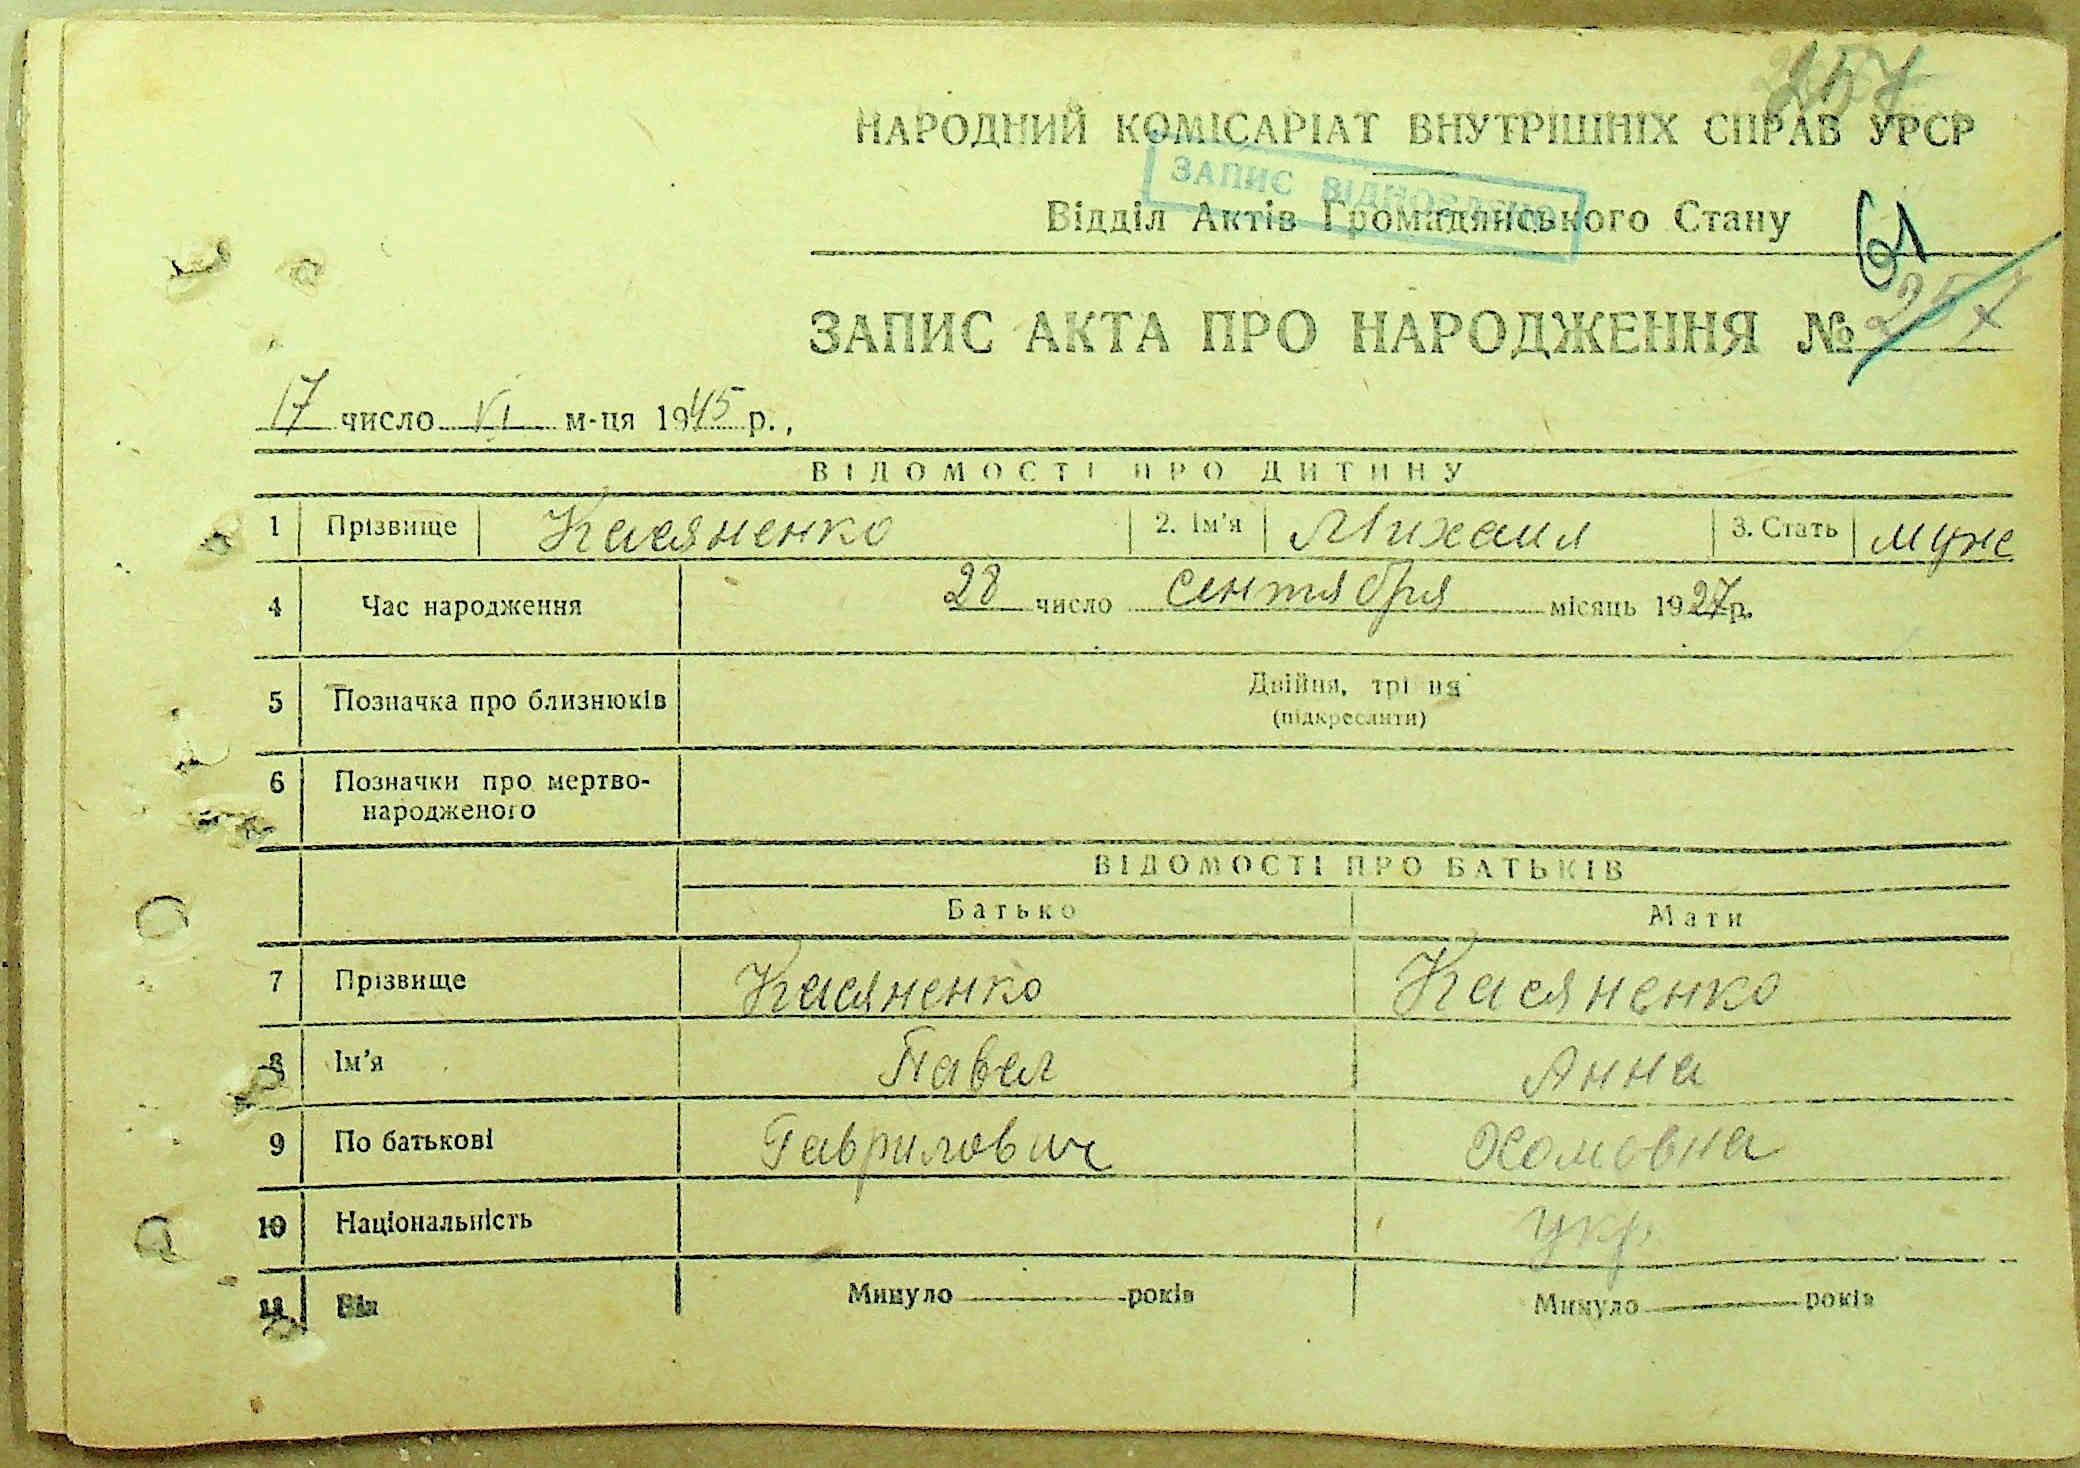 257
НАРОДНИЙ КОМІСАРІАТ ВНУТРІШНІХ СПРАВ УРСР
ЗАПИС ВІДНОВЛЕНО
Відділ Актів Громадянського Стану
61
ЗАПИС АКТА ПРО НАРОДЖЕННЯ № 257
17 число VI м-ця 1945 р.,
ВІДОМОСТІ ПРО ДИТИНУ
1 Прізвище Касяненко 2. Ім'я Михаил 3. Стать муж
4 Час народження 28 число сентября місяць 1927 р.
5 Позначка про близнюків Двійня, трійня
(підкреслити)
6 Позначки про мертво-
народженого
ВІДОМОСТІ ПРО БАТЬКІВ
Батько Мати
7 Прізвище Касяненко Касяненко
8 Ім'я Павел Анна
9 По батькові Гаврилович Хомовна
10 Національність укр.
11 Вік Минуло років Минуло років